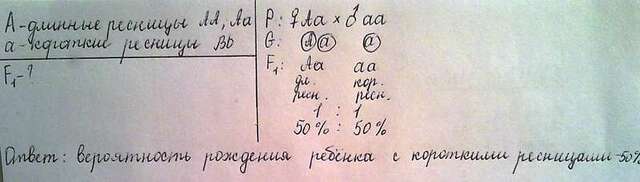 А-длинные ресницы АА, Аа
а-короткие ресницы Bb
F₁-?
P: ♀Aa × ♂aa
G: A a a
F₁: Aa aa
дл. кор.
ресн. ресн.
1 : 1
50% : 50%
Ответ: вероятность рождения ребёнка с короткими ресницами-50%